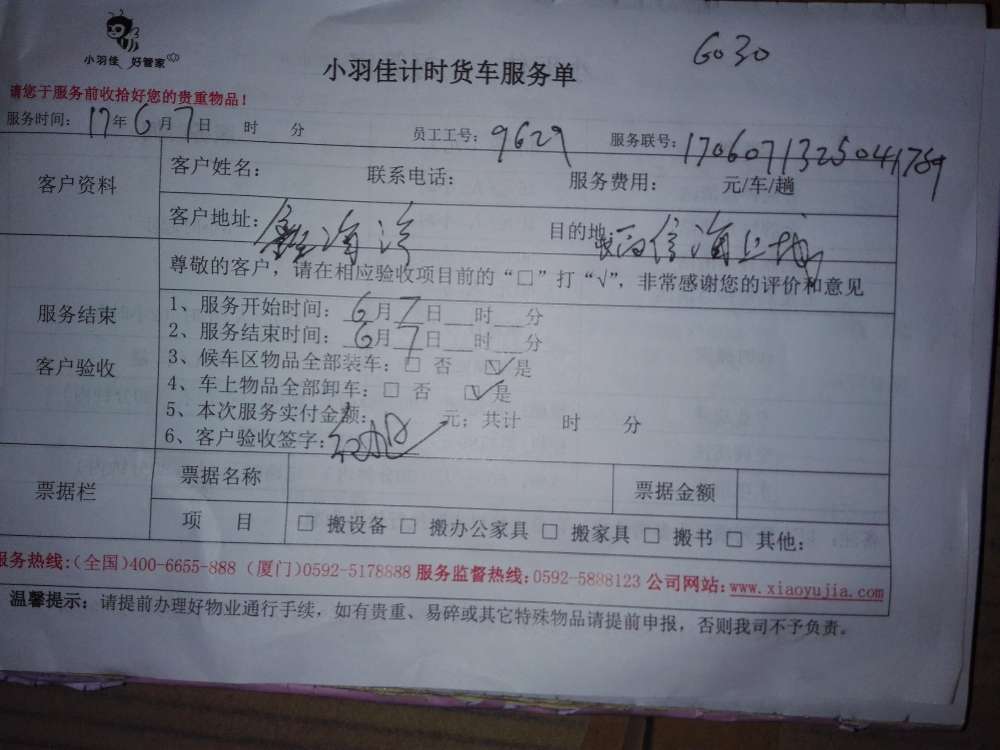 小羽佳 好管家
GO30
小羽佳计时货车服务单
请您于服务前收拾好您的贵重物品！
服务时间：17年6月7日 时 分 员工工号：9629 服务联号：17060713250441769
客户资料
客户姓名： 联系电话： 服务费用： 元/车/趟
客户地址： 目的地： 信海上城
尊敬的客户，请在相应验收项目前的“□”打“√”，非常感谢您的评价和意见
服务结束
客户验收
1、服务开始时间：6月7日__时__分
2、服务结束时间：6月7日__时__分
3、候车区物品全部装车：□ 否 ☑是
4、车上物品全部卸车：□ 否 ☑是
5、本次服务实付金额： 元；共计 时 分
6、客户验收签字：
票据栏
票据名称 票据金额
项 目 □ 搬设备 □ 搬办公家具 □ 搬家具 □ 搬书 □ 其他：
服务热线:(全国)400-6655-888 (厦门)0592-5178888 服务监督热线:0592-5888123 公司网站:www.xiaoyujia.com
温馨提示：请提前办理好物业通行手续，如有贵重、易碎或其它特殊物品请提前申报，否则我司不予负责。